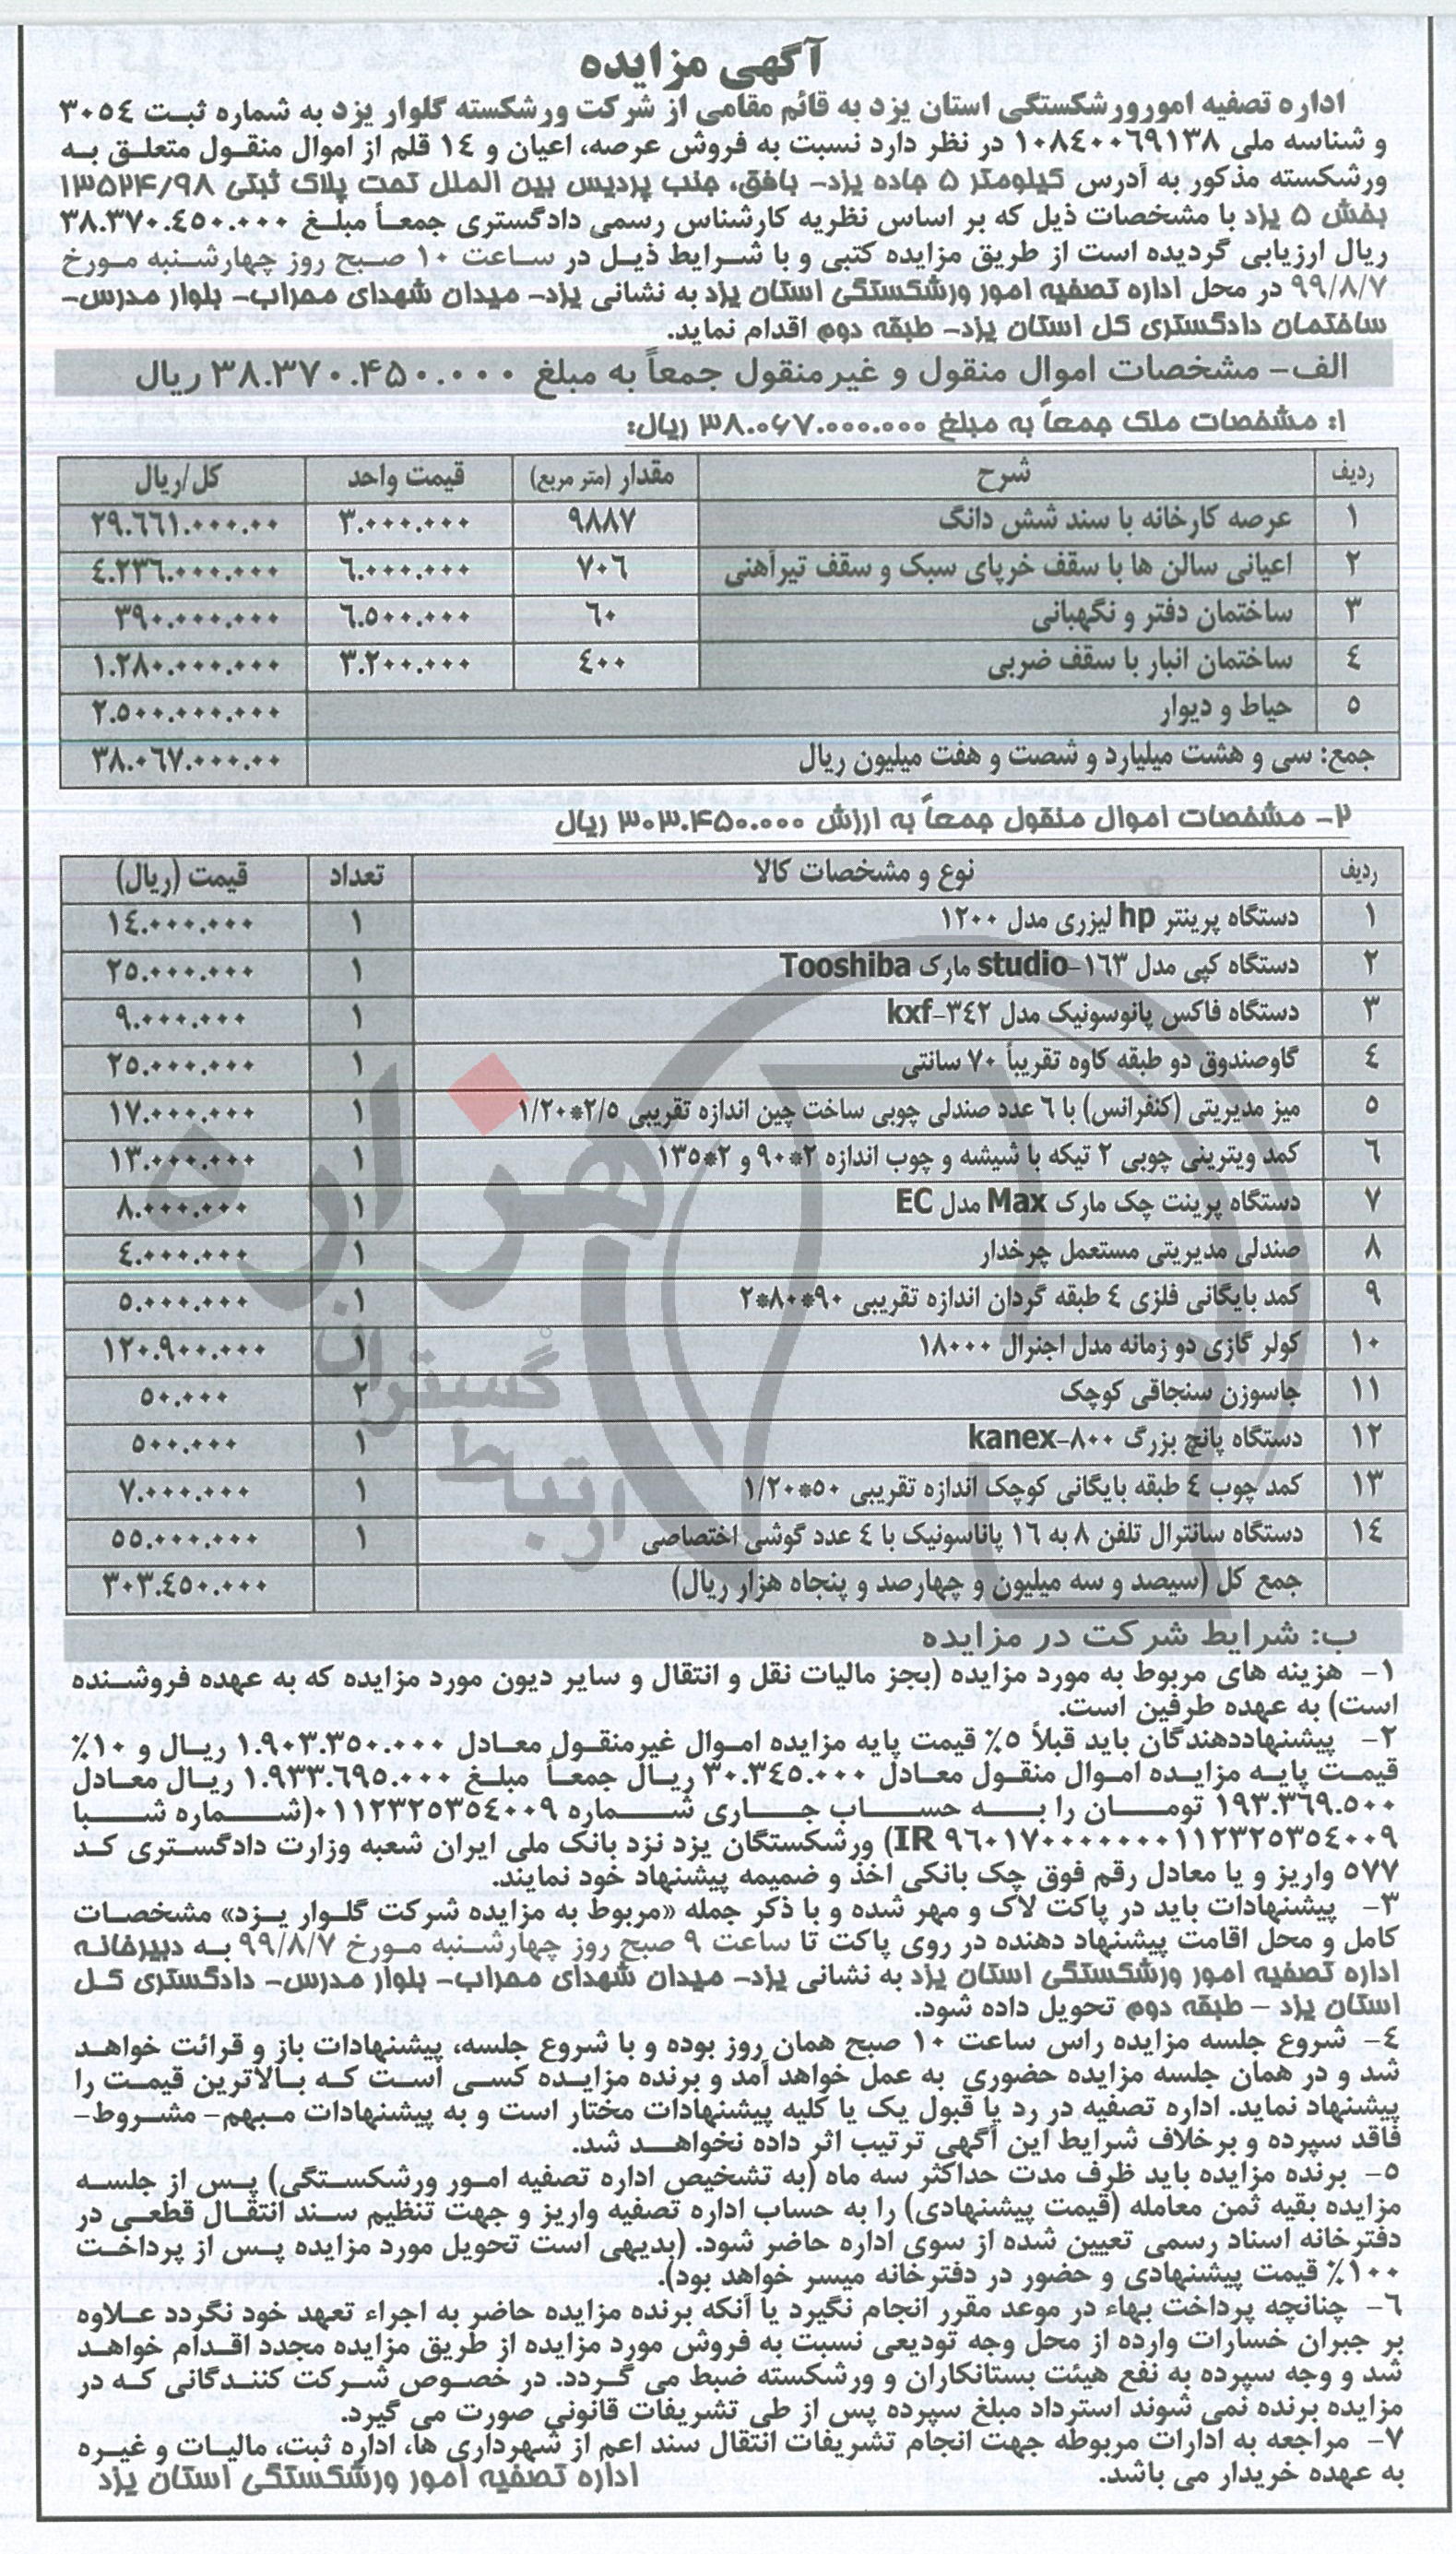 آگهی مزایده
اداره تصفیه امورورشکستگی استان یزد به قائم مقامی از شرکت ورشکسته گلوار یزد به شماره ثبت ٣٠٥٤
و شناسه ملی ١٠٨٤٠٠٦٩١٣٨ در نظر دارد نسبت به فروش عرصه، اعیان و ١٤ قلم از اموال منقول متعلق به
ورشکسته مذکور به آدرس کیلومتر ۵ جاده یزد- بافق، جنب پردیس بین الملل تحت پلاک ثبتی ۱۳۵۲۴/۹۸
بخش ۵ یزد با مشخصات ذیل که بر اساس نظریه کارشناس رسمی دادگستری جمعاً مبلغ ٣٨.٣٧٠.٤٥٠.٠٠٠
ریال ارزیابی گردیده است از طریق مزایده کتبی و با شرایط ذیل در ساعت ١٠ صبح روز چهارشنبه مورخ
٩٩/٨/٧ در محل اداره تصفیه امور ورشکستگی استان یزد به نشانی یزد- میدان شهدای محراب- بلوار مدرس-
ساختمان دادگستری کل استان یزد- طبقه دوم اقدام نماید.
الف- مشخصات اموال منقول و غیرمنقول جمعاً به مبلغ ۳۸.۳۷۰.۴۵۰.۰۰۰ ریال
۱: مشخصات ملک جمعاً به مبلغ ۳۸.۰۶۷.۰۰۰.۰۰۰ ریال:
ردیف شرح مقدار (متر مربع) قیمت واحد کل/ریال
١ عرصه کارخانه با سند شش دانگ ٩٨٨٧ ٣.٠٠٠.٠٠٠ ٢٩.٦٦١.٠٠٠.٠٠
٢ اعیانی سالن ها با سقف خرپای سبک و سقف تیرآهنی ٧٠٦ ٦.٠٠٠.٠٠٠ ٤.٢٣٦.٠٠٠.٠٠٠
٣ ساختمان دفتر و نگهبانی ٦٠ ٦.٥٠٠.٠٠٠ ٣٩٠.٠٠٠.٠٠٠
٤ ساختمان انبار با سقف ضربی ٤٠٠ ٣.٢٠٠.٠٠٠ ١.٢٨٠.٠٠٠.٠٠٠
٥ حیاط و دیوار ٢.٥٠٠.٠٠٠.٠٠٠
جمع: سی و هشت میلیارد و شصت و هفت میلیون ریال ٣٨.٠٦٧.٠٠٠.٠٠
۲- مشخصات اموال منقول جمعاً به ارزش ۳۰۳.۴۵۰.۰۰۰ ریال
ردیف نوع و مشخصات کالا تعداد قیمت (ریال)
١ دستگاه پرینتر hp لیزری مدل ١٢٠٠ ١ ١٤.٠٠٠.٠٠٠
٢ دستگاه کپی مدل ١٦٣-studio مارک Tooshiba ١ ٢٥.٠٠٠.٠٠٠
٣ دستگاه فاکس پانوسونیک مدل ٣٤٢-kxf ١ ٩.٠٠٠.٠٠٠
٤ گاوصندوق دو طبقه کاوه تقریباً ٧٠ سانتی ١ ٢٥.٠٠٠.٠٠٠
٥ میز مدیریتی (کنفرانس) با ٦ عدد صندلی چوبی ساخت چین اندازه تقریبی ٢/٥*١/٢٠ ١ ١٧.٠٠٠.٠٠٠
٦ کمد ویترینی چوبی ٢ تیکه با شیشه و چوب اندازه ٢*٩٠ و ٢*١٣٥ ١ ١٣.٠٠٠.٠٠٠
٧ دستگاه پرینت چک مارک Max مدل EC ١ ٨.٠٠٠.٠٠٠
٨ صندلی مدیریتی مستعمل چرخدار ١ ٤.٠٠٠.٠٠٠
٩ کمد بایگانی فلزی ٤ طبقه گردان اندازه تقریبی ٩٠*٨٠*٢ ١ ٥.٠٠٠.٠٠٠
١٠ کولر گازی دو زمانه مدل اجنرال ١٨٠٠٠ ١ ١٢٠.٩٠٠.٠٠٠
١١ جاسوزن سنجاقی کوچک ٢ ٥٠.٠٠٠
١٢ دستگاه پانچ بزرگ ٨٠٠-kanex ١ ٥٠٠.٠٠٠
١٣ کمد چوب ٤ طبقه بایگانی کوچک اندازه تقریبی ٥٠*١/٢٠ ١ ٧.٠٠٠.٠٠٠
١٤ دستگاه سانترال تلفن ٨ به ١٦ پاناسونیک با ٤ عدد گوشی اختصاصی ١ ٥٥.٠٠٠.٠٠٠
جمع کل (سیصد و سه میلیون و چهارصد و پنجاه هزار ریال) ٣٠٣.٤٥٠.٠٠٠
هزاران
گستران
ارتباط
ب: شرایط شرکت در مزایده
١- هزینه های مربوط به مورد مزایده (بجز مالیات نقل و انتقال و سایر دیون مورد مزایده که به عهده فروشنده
است) به عهده طرفین است.
٢- پیشنهاددهندگان باید قبلاً ٥٪ قیمت پایه مزایده اموال غیرمنقول معادل ١.٩٠٣.٣٥٠.٠٠٠ ریال و ١٠٪
قیمت پایه مزایده اموال منقول معادل ٣٠.٣٤٥.٠٠٠ ریال جمعاً مبلغ ١.٩٣٣.٦٩٥.٠٠٠ ریال معادل
١٩٣.٣٦٩.٥٠٠ تومان را به حساب جاری شماره ٠١١٢٣٢٥٣٥٤٠٠٩(شماره شبا
IR ٩٦٠١٧٠٠٠٠٠٠٠١١٢٣٢٥٣٥٤٠٠٩) ورشکستگان یزد نزد بانک ملی ایران شعبه وزارت دادگستری کد
٥٧٧ واریز و یا معادل رقم فوق چک بانکی اخذ و ضمیمه پیشنهاد خود نمایند.
٣- پیشنهادات باید در پاکت لاک و مهر شده و با ذکر جمله «مربوط به مزایده شرکت گلوار یزد» مشخصات
کامل و محل اقامت پیشنهاد دهنده در روی پاکت تا ساعت ٩ صبح روز چهارشنبه مورخ ٩٩/٨/٧ به دبیرخانه
اداره تصفیه امور ورشکستگی استان یزد به نشانی یزد- میدان شهدای محراب- بلوار مدرس- دادگستری کل
استان یزد - طبقه دوم تحویل داده شود.
٤- شروع جلسه مزایده راس ساعت ١٠ صبح همان روز بوده و با شروع جلسه، پیشنهادات باز و قرائت خواهد
شد و در همان جلسه مزایده حضوری به عمل خواهد آمد و برنده مزایده کسی است که بالاترین قیمت را
پیشنهاد نماید. اداره تصفیه در رد یا قبول یک یا کلیه پیشنهادات مختار است و به پیشنهادات مبهم- مشروط-
فاقد سپرده و برخلاف شرایط این آگهی ترتیب اثر داده نخواهد شد.
٥- برنده مزایده باید ظرف مدت حداکثر سه ماه (به تشخیص اداره تصفیه امور ورشکستگی) پس از جلسه
مزایده بقیه ثمن معامله (قیمت پیشنهادی) را به حساب اداره تصفیه واریز و جهت تنظیم سند انتقال قطعی در
دفترخانه اسناد رسمی تعیین شده از سوی اداره حاضر شود. (بدیهی است تحویل مورد مزایده پس از پرداخت
١٠٠٪ قیمت پیشنهادی و حضور در دفترخانه میسر خواهد بود).
٦- چنانچه پرداخت بهاء در موعد مقرر انجام نگیرد یا آنکه برنده مزایده حاضر به اجراء تعهد خود نگردد علاوه
بر جبران خسارات وارده از محل وجه تودیعی نسبت به فروش مورد مزایده از طریق مزایده مجدد اقدام خواهد
شد و وجه سپرده به نفع هیئت بستانکاران و ورشکسته ضبط می گردد. در خصوص شرکت کنندگانی که در
مزایده برنده نمی شوند استرداد مبلغ سپرده پس از طی تشریفات قانونی صورت می گیرد.
٧- مراجعه به ادارات مربوطه جهت انجام تشریفات انتقال سند اعم از شهرداری ها، اداره ثبت، مالیات و غیره
به عهده خریدار می باشد.
اداره تصفیه امور ورشکستگی استان یزد